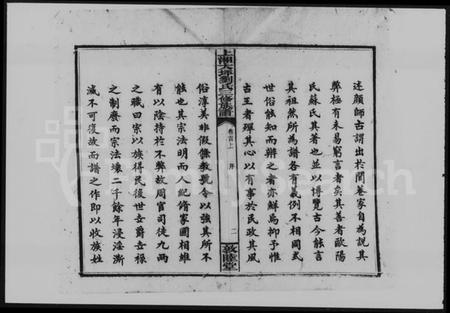 述顏師古謂出於閭巷家自為說其
弊極有未易窮言者矣其善者歐陽
民蘇氏其著也並以博覽古今能言
其祖然所為譜各有義例不相同式
世俗能知而辨之者亦鮮焉抑予惟
古王者殫其心以有事於民政其風
上湘大坪劉氏 修族譜
卷首上 序 二
敦睦堂
俗淳美非假條教號令以強其所不
能也其宗法明而人紀脩家國相維
有以陰持於不弊故周官司徒九兩
之職曰宗以族得民後世去爵去祿
之制廢而宗法壞二千餘年浸淫漸
滅不可復故而譜之作即以收族姓
FamilySearch